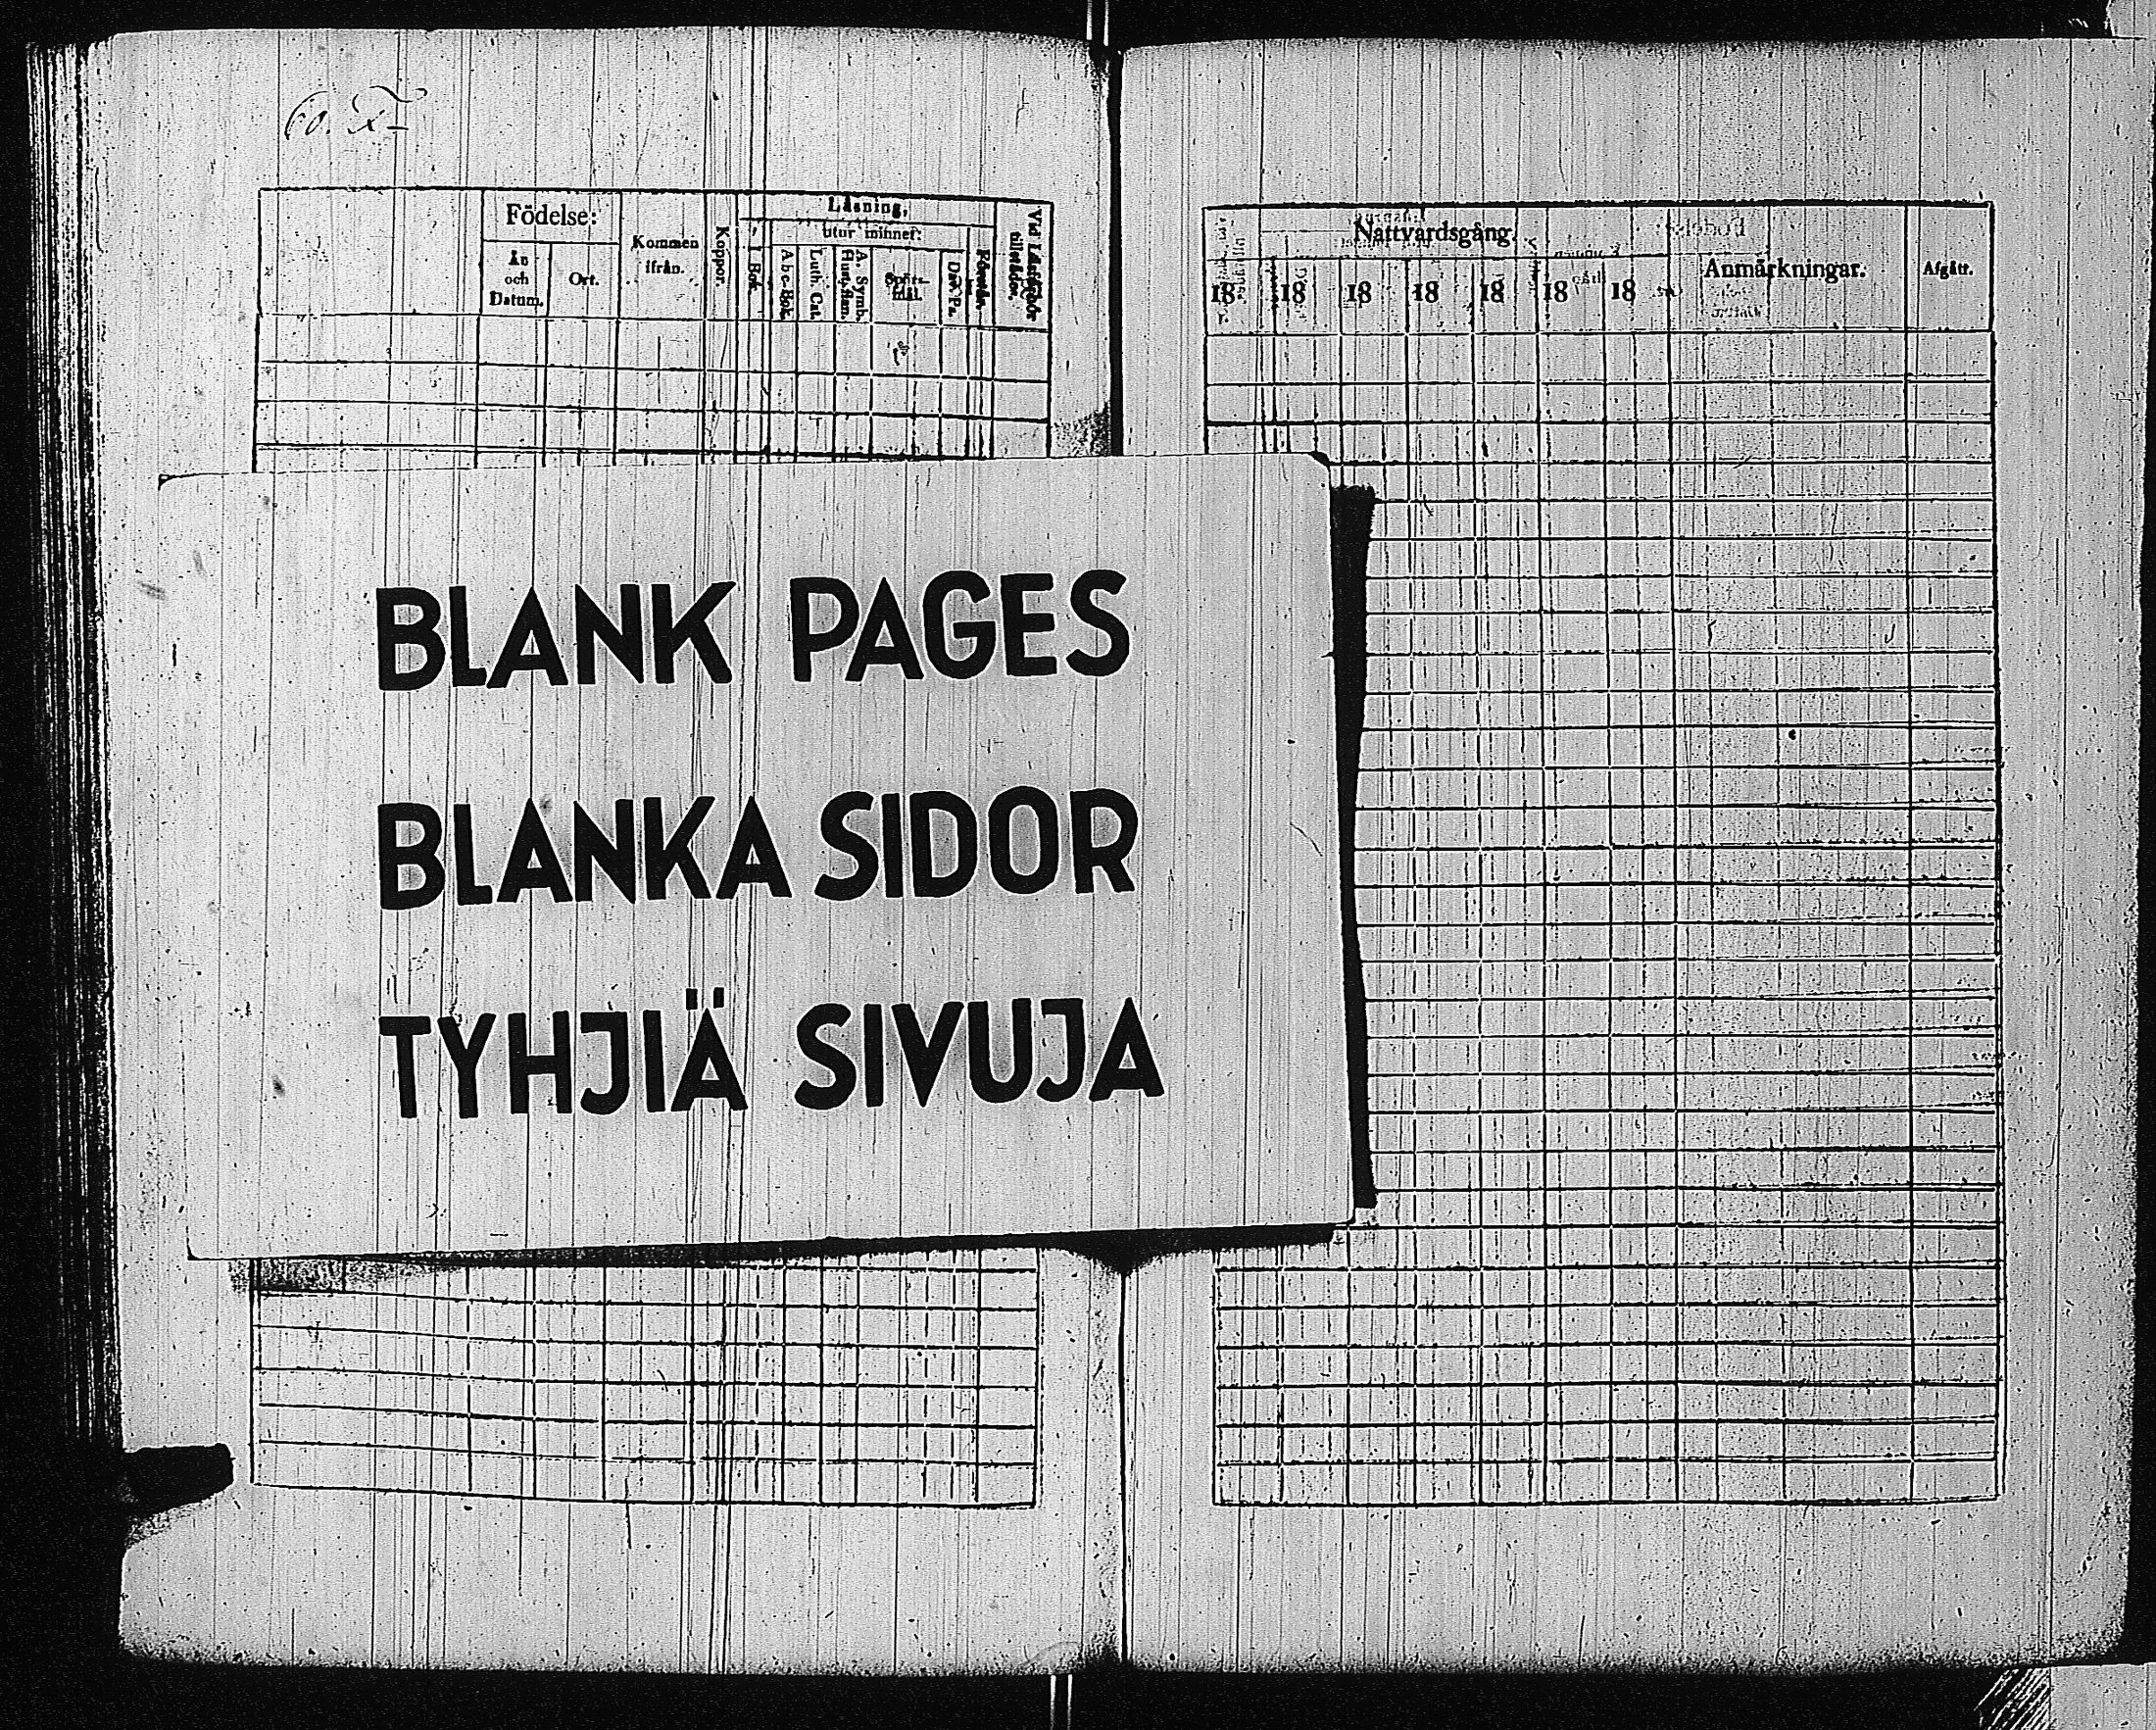 60.
Födelse:
År och Datum.
Ort.
Kommen ifrån.
Koppor.
Läsning,
utur minnet:
I Bok.
A b c-Bok.
Luth. Cat.
A. Symb.
Hust.
Spörs-mål.
Dav. Ps.
Vid Läsförhör tillstädes.
Nattvardsgång.
18 18 18 18 18 18 18
Anmärkningar.
Afgått.
BLANK PAGES
BLANKA SIDOR
TYHJIÄ SIVUJA